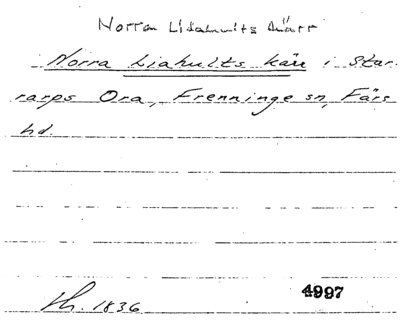 Norra Liahults kärr
Norra Liahults kärr i Star-
rarps Ora, Frenninge sn, Färs
hd.
1836
4997